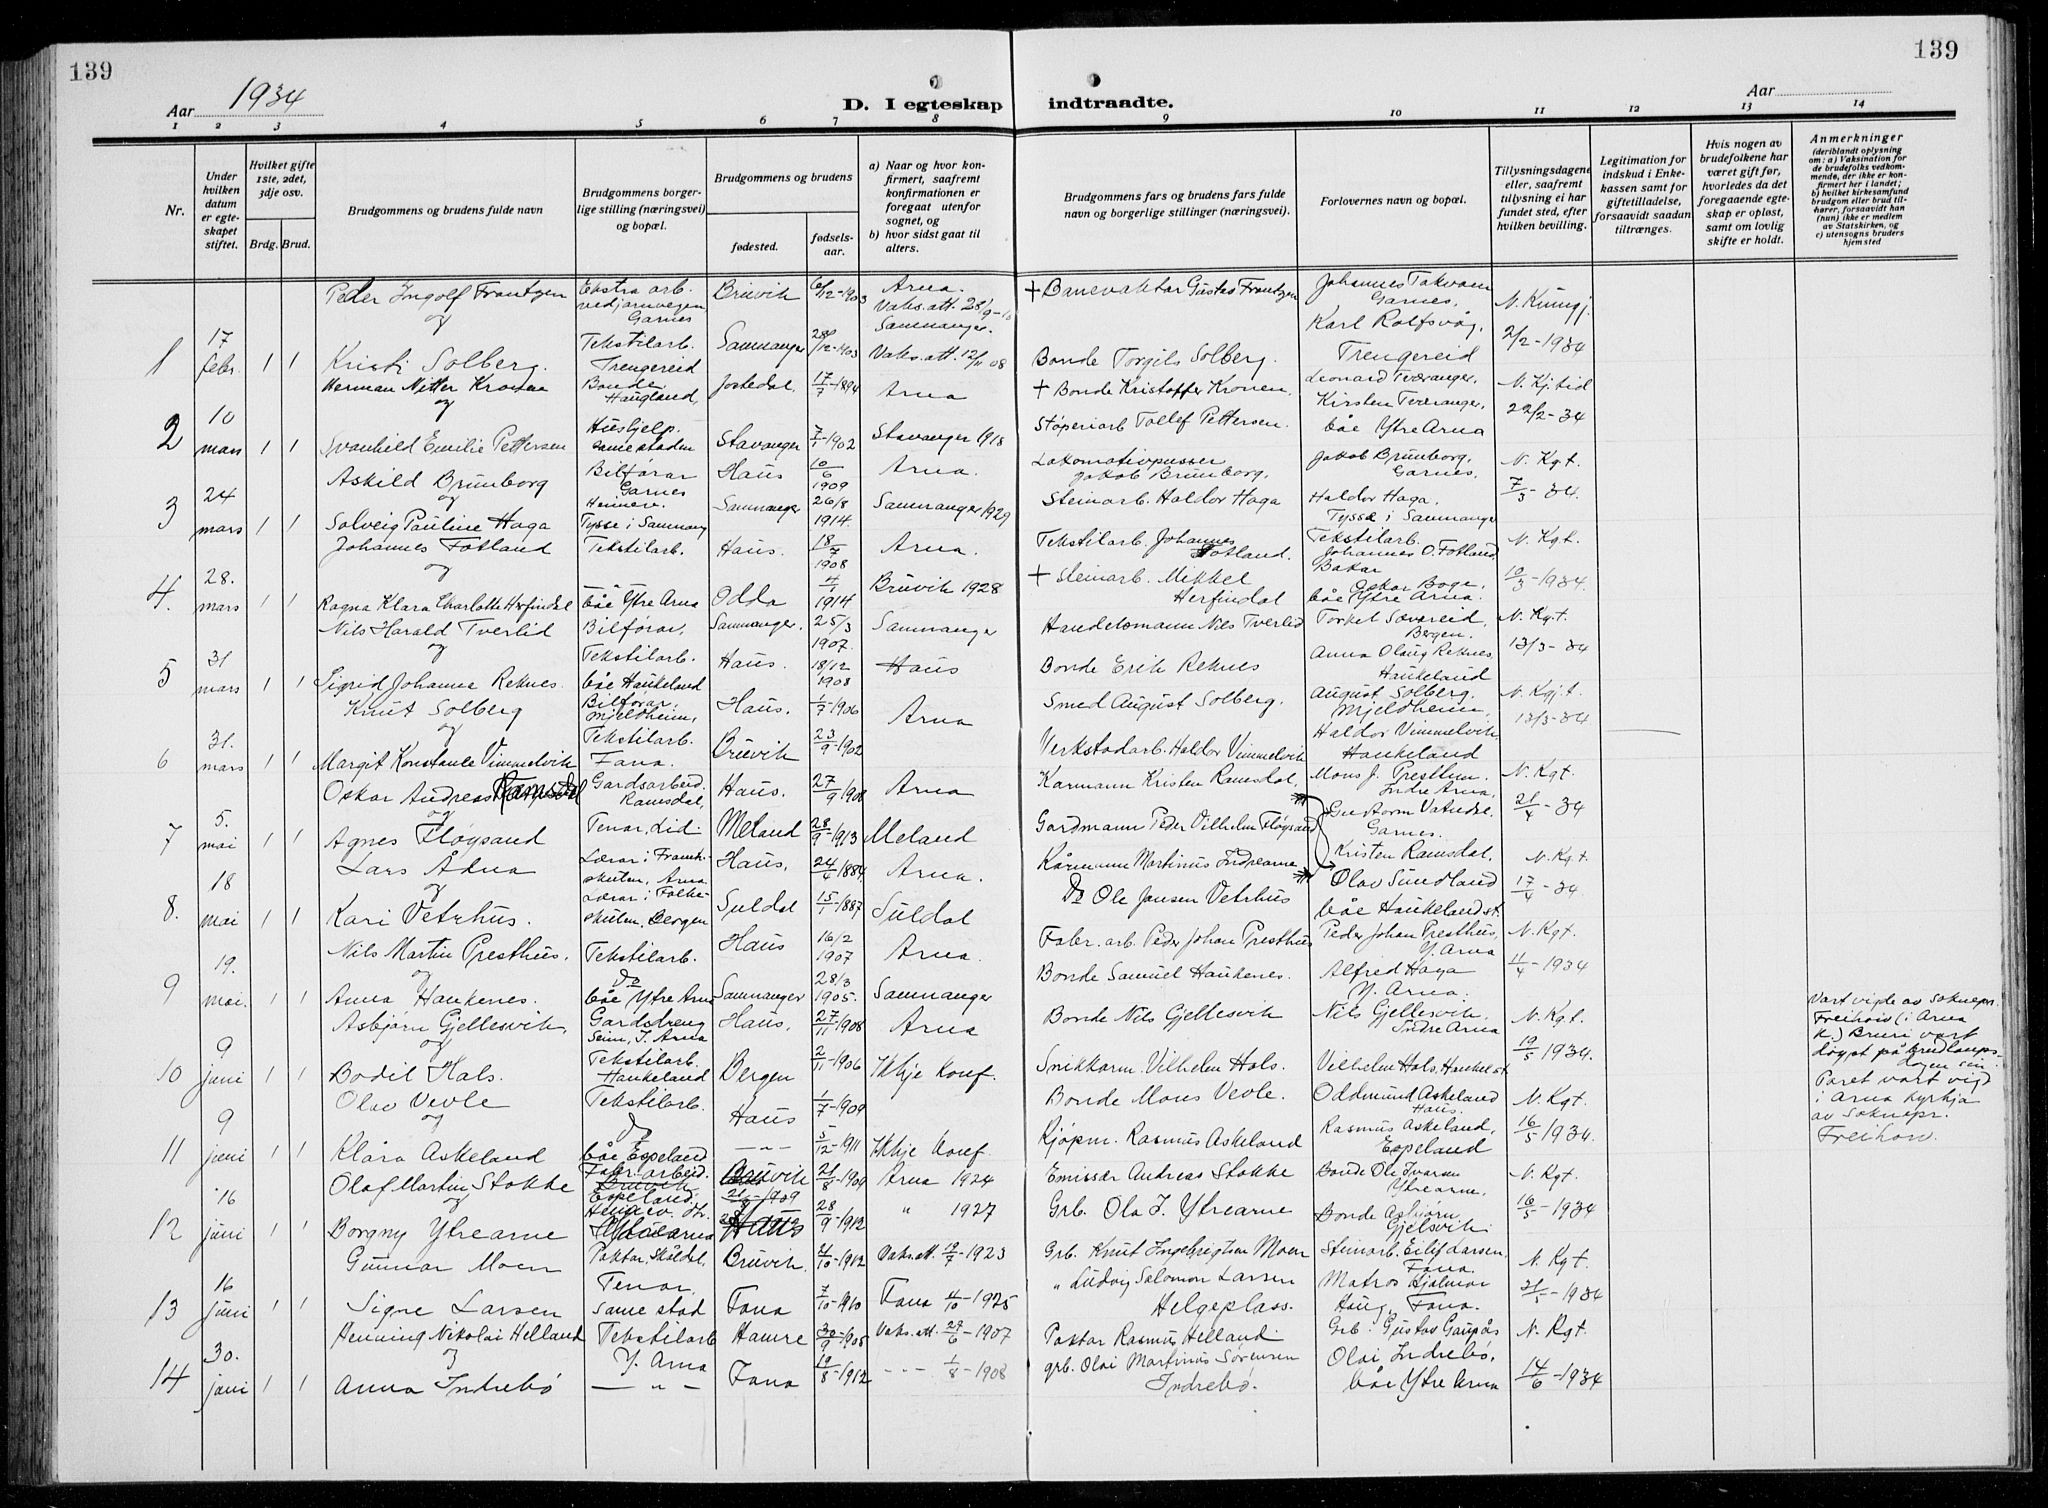 139
139
Aar 1934
D. I egteskap indtraadte.
Aar
1 2 3 4 5 6 7 8 9 10 11 12 13 14
Nr.
Under hvilken datum er egteskapet stiftet.
Hvilket gifte 1ste, 2det, 3dje osv.
Brdg. Brud.
Brudgommens og brudens fulde navn
Brudgommens borgerlige stilling (næringsvei) og bopæl.
Brudgommens og brudens
fødested.
fødselsaar.
a) Naar og hvor konfirmert, saafremt konfirmationen er foregaat utenfor sognet, og
b) hvor sidst gaat til alters.
Brudgommens fars og brudens fars fulde navn og borgerlige stillinger (næringsvei).
Forlovernes navn og bopæl.
Tillysningsdagene eller, saafremt tillysning ei har fundet sted, efter hvilken bevilling.
Legitimation for indskud i Enkekassen samt for giftetilladelse, forsaavidt saadan tiltrænges.
Hvis nogen av brudefolkene har været gift før, hvorledes da det foregaaende egteskap er opløst, samt om lovlig skifte er holdt.
Anmerkninger
(deriblandt oplysning om: a) Vaksination for de brudefolks vedkommende, der ikke er konfirmert her i landet; b) hvilket kirkesamfund brudgom eller brud tilhører, forsaavidt han (hun) ikke er medlem av Statskirken, og c) utensogns bruders hjemsted
Peder Ingolf Frantzen Ekstra arb. ved jarnvegen Garnes Bruvik 6/12-1903 Arna. Vaks.att. 28/9-10 + Banevaktar Gustav Frantzen Johannes Takvam Garnes. N. Kunngj.
og
1 17 febr. 1 1 Kristi Solberg. Tekstilarb. Trengereid Samnanger 28/12-1903 Samnanger. Vaks.att. 12/11 08 Bonde Torgils Solberg. Karl Rolfsvåg, Trengereid 2/2-1934
Herman Nitter Kronen Bonde. Haugland, Jostedal. 17/7-1894 Arna + Bonde Kristoffer Kronen. Leonard Tveranger, N. Kj. tid
og
2 10 mars 1 1 Svanhild Emilie Pettersen Hushjelp. same staden Stavanger 7/1-1902 Stavanger 1918 Støperiarb Tollef Pettersen. Kirsten Tveranger, båe Ytre Arna 22/2-34
Askild Brunborg Bilførar Garnes Haus 10/6 1909 Arna. Lokomotivpusser Jakob Brunborg. Jakob Brunborg, Garnes. N. Kgt.
og
3 24 mars 1 1 Solveig Pauline Haga Heimev. Tysse i Samnang Samnanger 26/8 1914. Samnanger 1929 Steinarb. Haldor Haga Haldor Haga. Tysse i Samnanger 7/3-34.
Johannes Fotland Tekstilarb. Haus. 18/7 1908 Arna. Tekstilarb. Johannes Fotland. Tekstilarb. Johannes O. Fotland, N. Kgt.
og
4. 28. mars 1 1 Ragna Klara Charlotte Herfindal båe Ytre Arna Odda 4/1 1914 Bruvik 1928 + Steinarb. Mikkel Herfindal Bakar Oskar Boge. båe Ytre Arna. 10/3-1934.
Nils Harald Tverlid Bilførar. Samnanger. 25/3 1907. Samnanger Handelsmann Nils Tverlid Torkel Sævareid, Bergen. N. Kgt.
og
5 31 mars 1 1 Sigrid Johanna Reknes. Tekstilarb. båe Haukeland Haus. 18/12 1908 Haus Bonde Erik Reknes Anna Olaug Reknes, Haukeland 13/3-34
Knut Solberg Bilførar. Mjeldheim, Haus. 1/7-1906 Arna Smed August Solberg. August Solberg. Mjeldheim, N. Kgj.t.
og
6 31. mars 1 1 Margit Konstanse Vimmelvik Tekstilarb. Fana. Bruvik 23/9-1902 Verkstadarb. Haldor Vimmelvik Haldor Vimmelvik, Haukeland 13/3-34
Oskar Andreas Ramsdal Gardsarbeid. Ramsdal, Haus. 27/9-1908 Arna Kormann Kristen Ramsdal, Mons J. Presthun. Indre Arna, N. Kgt.
og
7 5. mai 1 1 Agnes Fløysand Tenar. Lid. Meland 28/9-1913 Meland Gardmann Peder Vilhelm Fløysand Garnes. 21/4-34
Lars Ådna Lærar i Framh. skulen, Arna Haus, 24/4 1884. Arna. Kårmann Martinus Indrearne Kristen Ramsdal. N. Kgt.
og
8. 18 mai 1 1 Kari Vetrhus. Lærar i Folkeskulen, Bergen Suldal 15/1-1887 Suldal Do Ole Jansen Vetrhus Olav Sundland båe Haukeland st. 17/4-34
Nils Martin Presthus. Tekstilarb. Haus 16/2 1907 Arna. Fabr. arb. Peder Johan Presthus Peder Johan Presthus, Y. Arna N. Kgt.
og
9 19. mai. 1 1 Anna Haukenes. Do båe Ytre Arna Samnanger 28/3 1905. Samnanger Bonde Samuel Haukenes. Alfred Haga Y. Arna. 11/4-1934
Asbjørn Gjellesvik Gardsdreng Seim, I. Arna Haus, 27/11-1908 Arna Bonde Nils Gjellesvik Nils Gjellesvik. Indre Arna N. Kgt. Vart vigde av soknepr. Freihow (i Arna k.) Bruri vart døypt på brudlaupsdagen sin.
og
10 9 juni 1 1 Bodil Hals. Tekstilarb. Haukeland Bergen 2/11-1906 Ikkje konf. Snikkarm. Vilhelm Hals. Vilhelm Hals, Haukel. st 19/5 1934.
Olav Vevle Tekstilarb. Haus 1/7-1909 Bonde Mons Vevle. Oddmund Askeland Haus. N. Kgt. Paret vart vigd i Arna kyrkja av Soknepr. Freihow.
og
11 9 juni 1 1 Klåra Askeland Do båe Espeland -"- 5/12-1911 Ikkje konf. Kjøpm. Rasmus Askeland Rasmus Askeland, Espeland 16/5 1934.
Olaf Martin Stokke Fabr. arbeid. Espeland. Bruvik 21/8-1909 Arna 1924 Emissær Andreas Stokke Bonde Ole Ivarsen Ytrearne. N. Kgt.
og
12 16 juni 1 1 Borgny Ytrearne Haus 28/9-1912 " 1927 Grb. Ola J. Ytrearne Bonde Asbjørn Gjelsvik 16/5-1934
Gunnar Moen Paktar, Skåldal. Bruvik. 4/10-1902 Vaks.att. 19/7-1923 Grb. Knut Ingebrigtsen Moen Steinarb. Eilif Larsen. Fana. N. Kgt.
13 16 juni 1 1 Signe Larsen Tenar. Same stad Fana 7/10-1910 Fana 4/10-1925 " Ludvig Salomon Larsen Helgeplass. Matros Hjalmar Haug, Fana. 31/5-1934
Henning Nikolai Helland Tekstilarb Y. Arna Hamre 30/9-1905 Vaks.att. 27/6-1907 Paktar Rasmus Helland. Grb. Gustav Gaupås N. Kgt.
og
14 30. juni 1 1 Anna Indrebø -"- Fana 19/8-1912 -"- 1/8-1908 grb. Olai Martinus Sørensen Indrebø. Olai Indrebø. båe Ytre Arna 14/6-1934